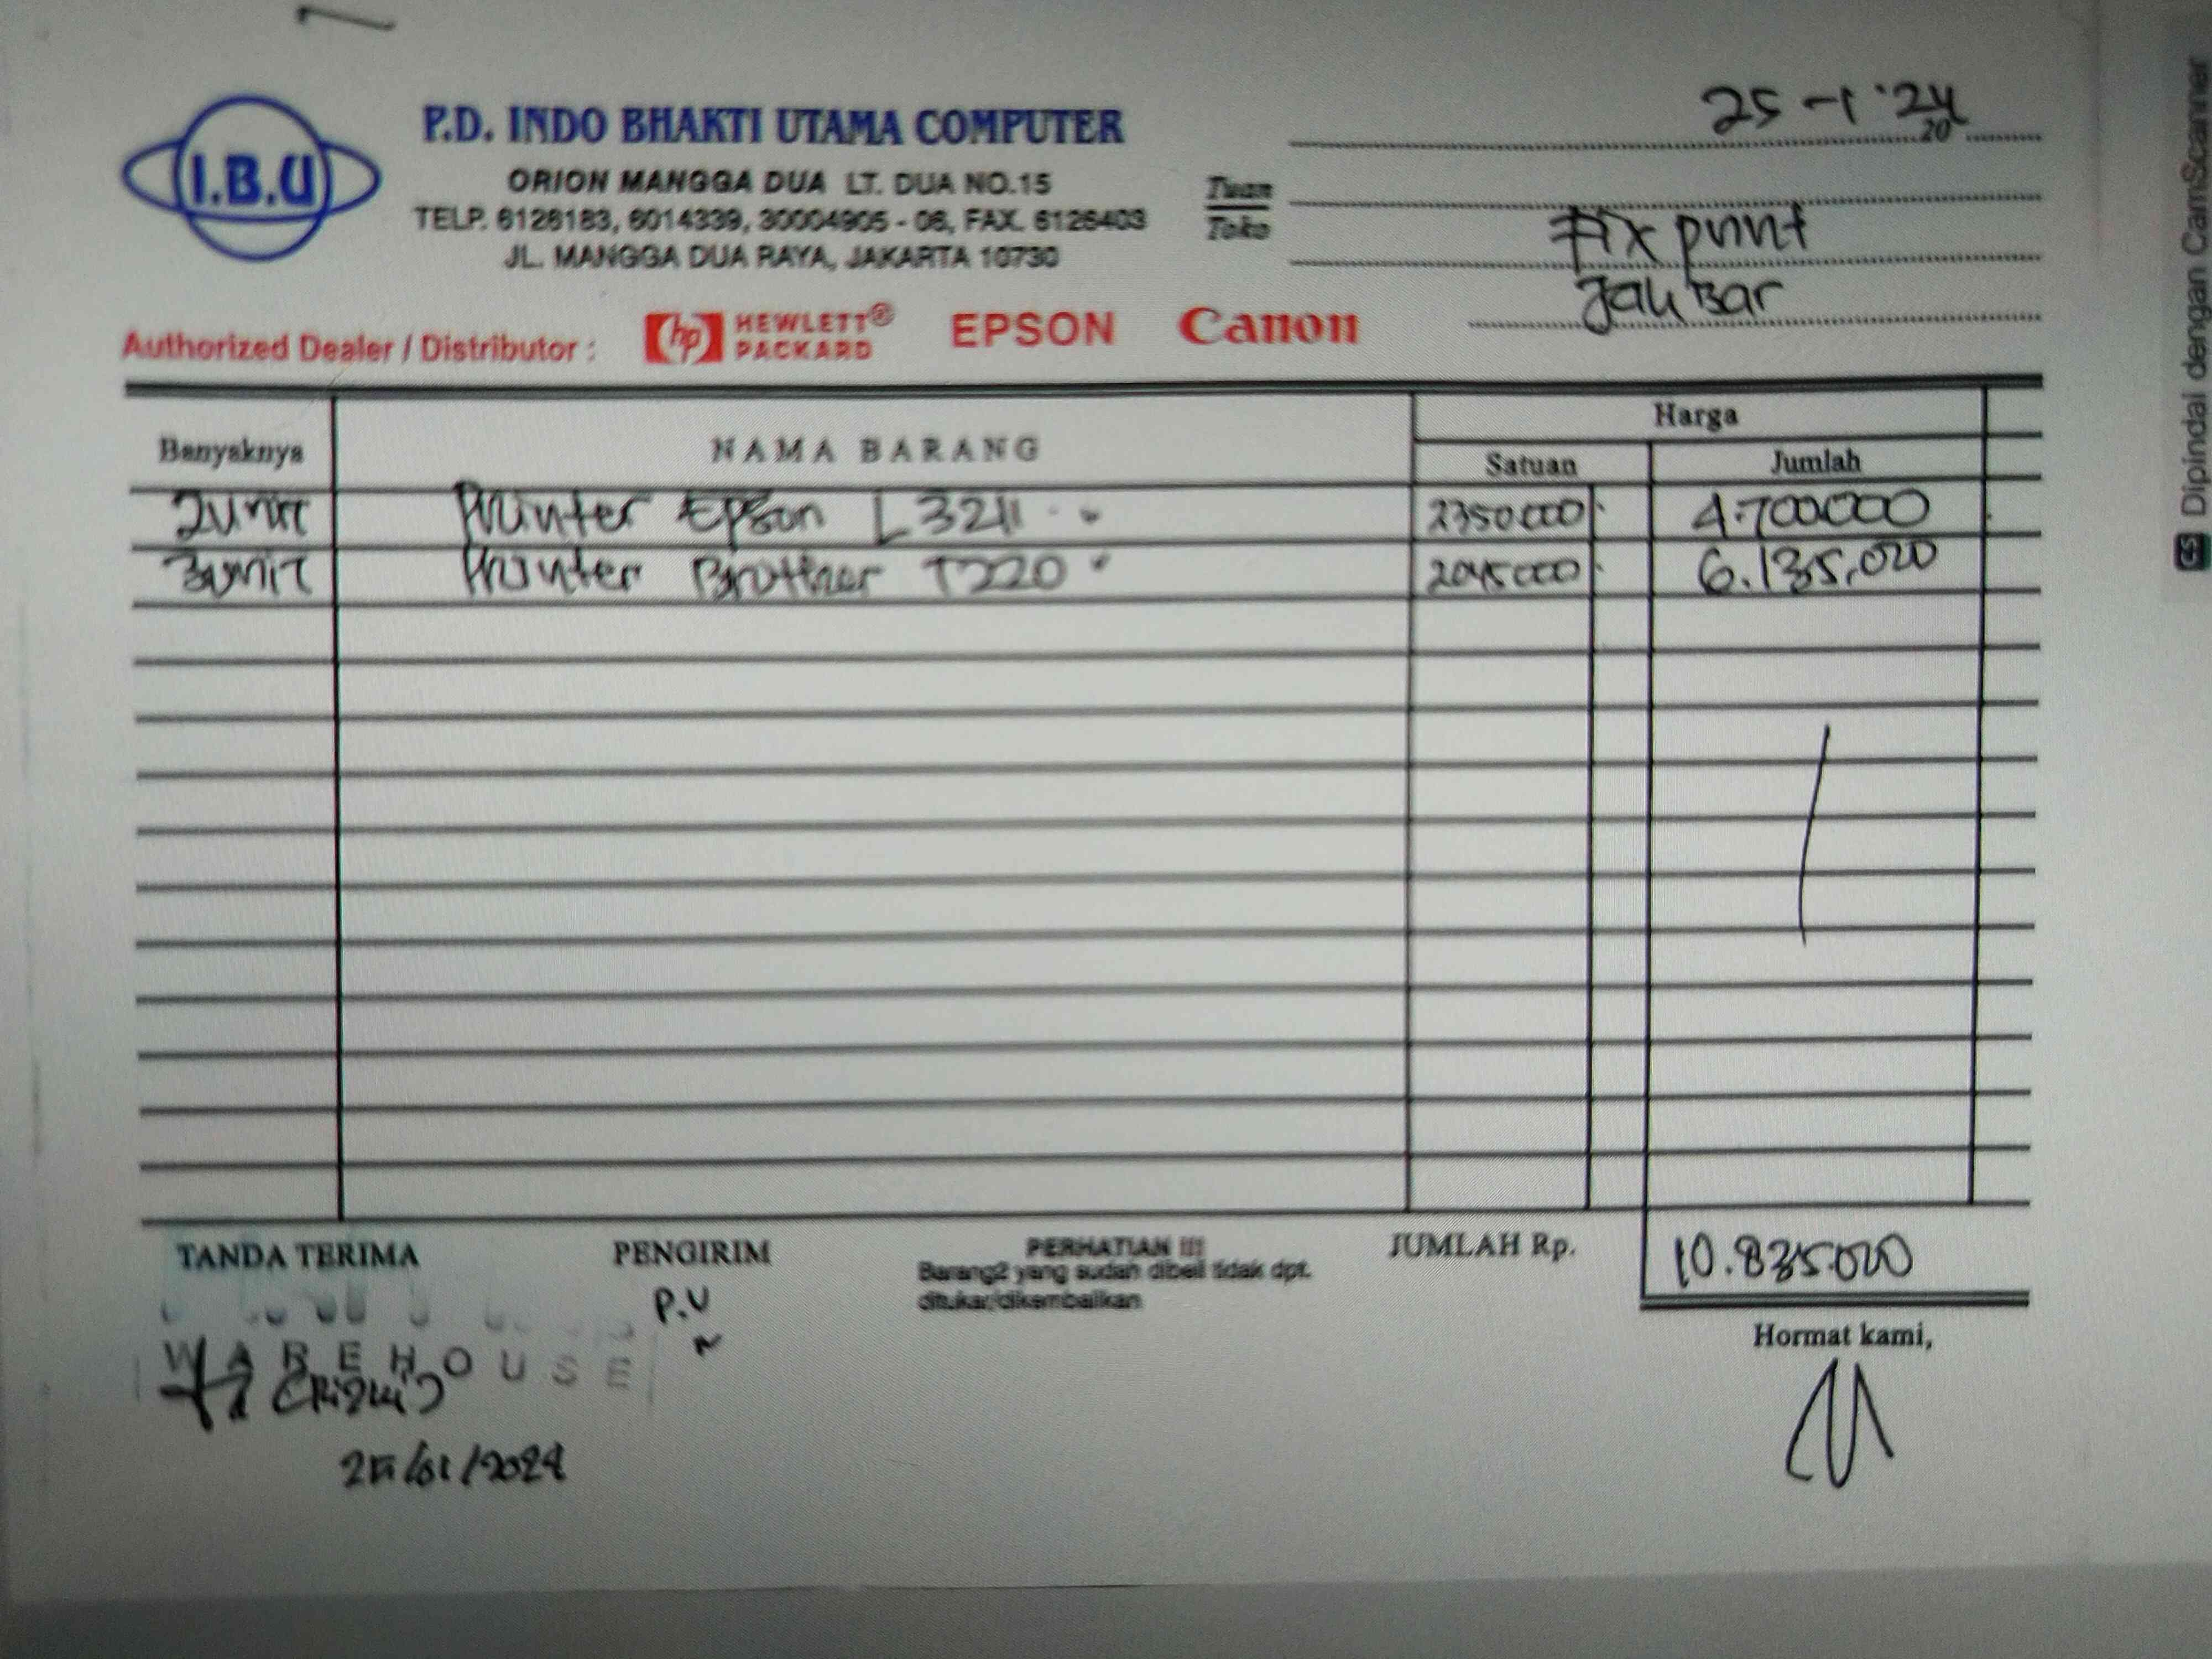 25-1-'24
20
I.B.U
P.D. INDO BHAKTI UTAMA COMPUTER
ORION MANGGA DUA LT. DUA NO.15
TELP. 6126183, 6014339, 30004905 - 06, FAX. 6126403
JL. MANGGA DUA RAYA, JAKARTA 10730
Tuan
Toko
Fix print
JakBar
Authorized Dealer / Distributor : hp HEWLETT® PACKARD EPSON Canon
Banyaknya NAMA BARANG Harga
Satuan Jumlah
2unit Printer Epson L3211 2350.000 4.700000
3unit Printer Brother T220 2045000 6.135.000
TANDA TERIMA PENGIRIM PERHATIAN !!! JUMLAH Rp. 10.835.000
Barang2 yang sudah dibeli tidak dpt.
ditukar/dikembalikan
P.U
WAREHOUSE
Hormat kami,
(Rizki)
25/01/2024
Dipindai dengan CamScanner
CS